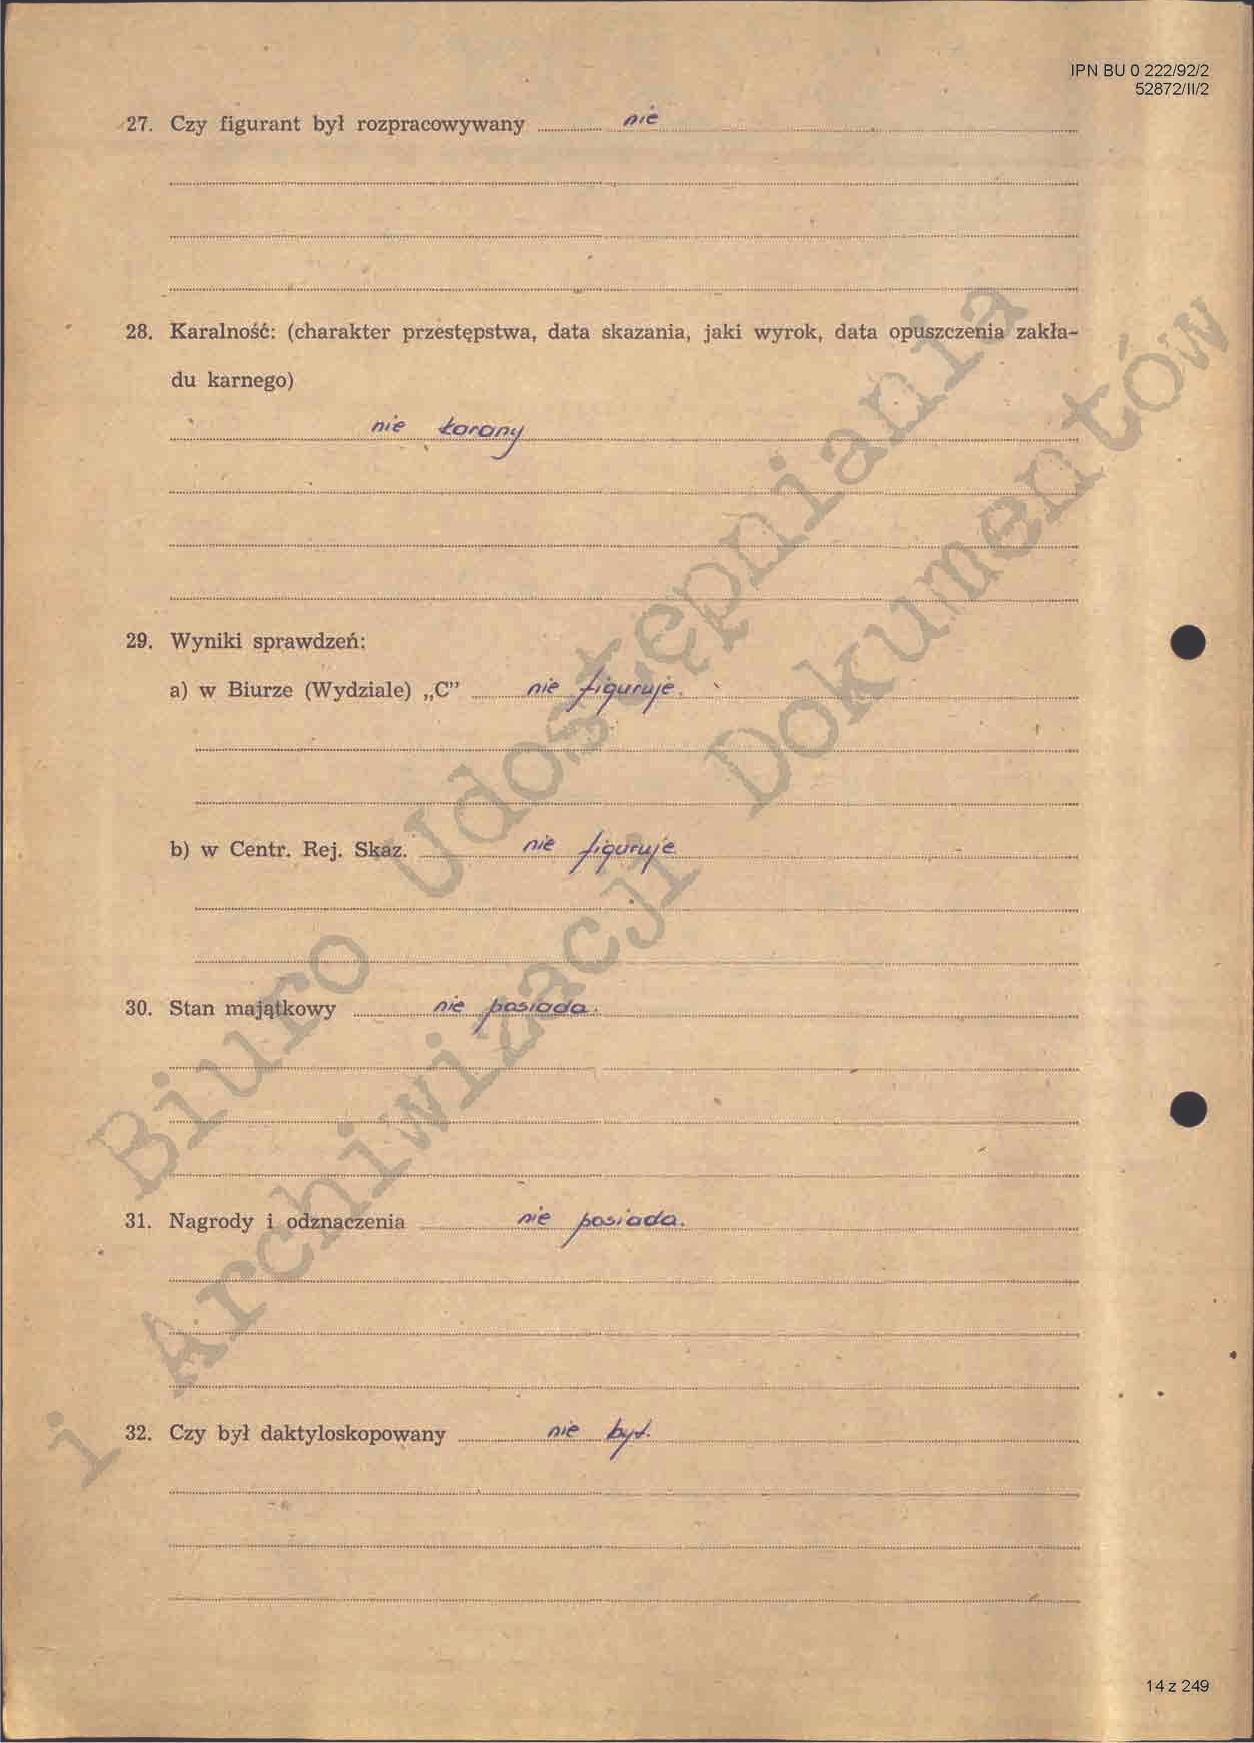 IPN BU 0 222/92/2
52872/II/2
27. Czy figurant był rozpracowywany nie
28. Karalność: (charakter przestępstwa, data skazania, jaki wyrok, data opuszczenia zakła-
du karnego)
nie karany
29. Wyniki sprawdzeń:
a) w Biurze (Wydziale) „C” nie figuruje.
b) w Centr. Rej. Skaz. nie figuruje
30. Stan majątkowy nie posiada.
31. Nagrody i odznaczenia nie posiada.
32. Czy był daktyloskopowany nie był.
Biuro Udostępniania
i Archiwizacji Dokumentów
14 z 249